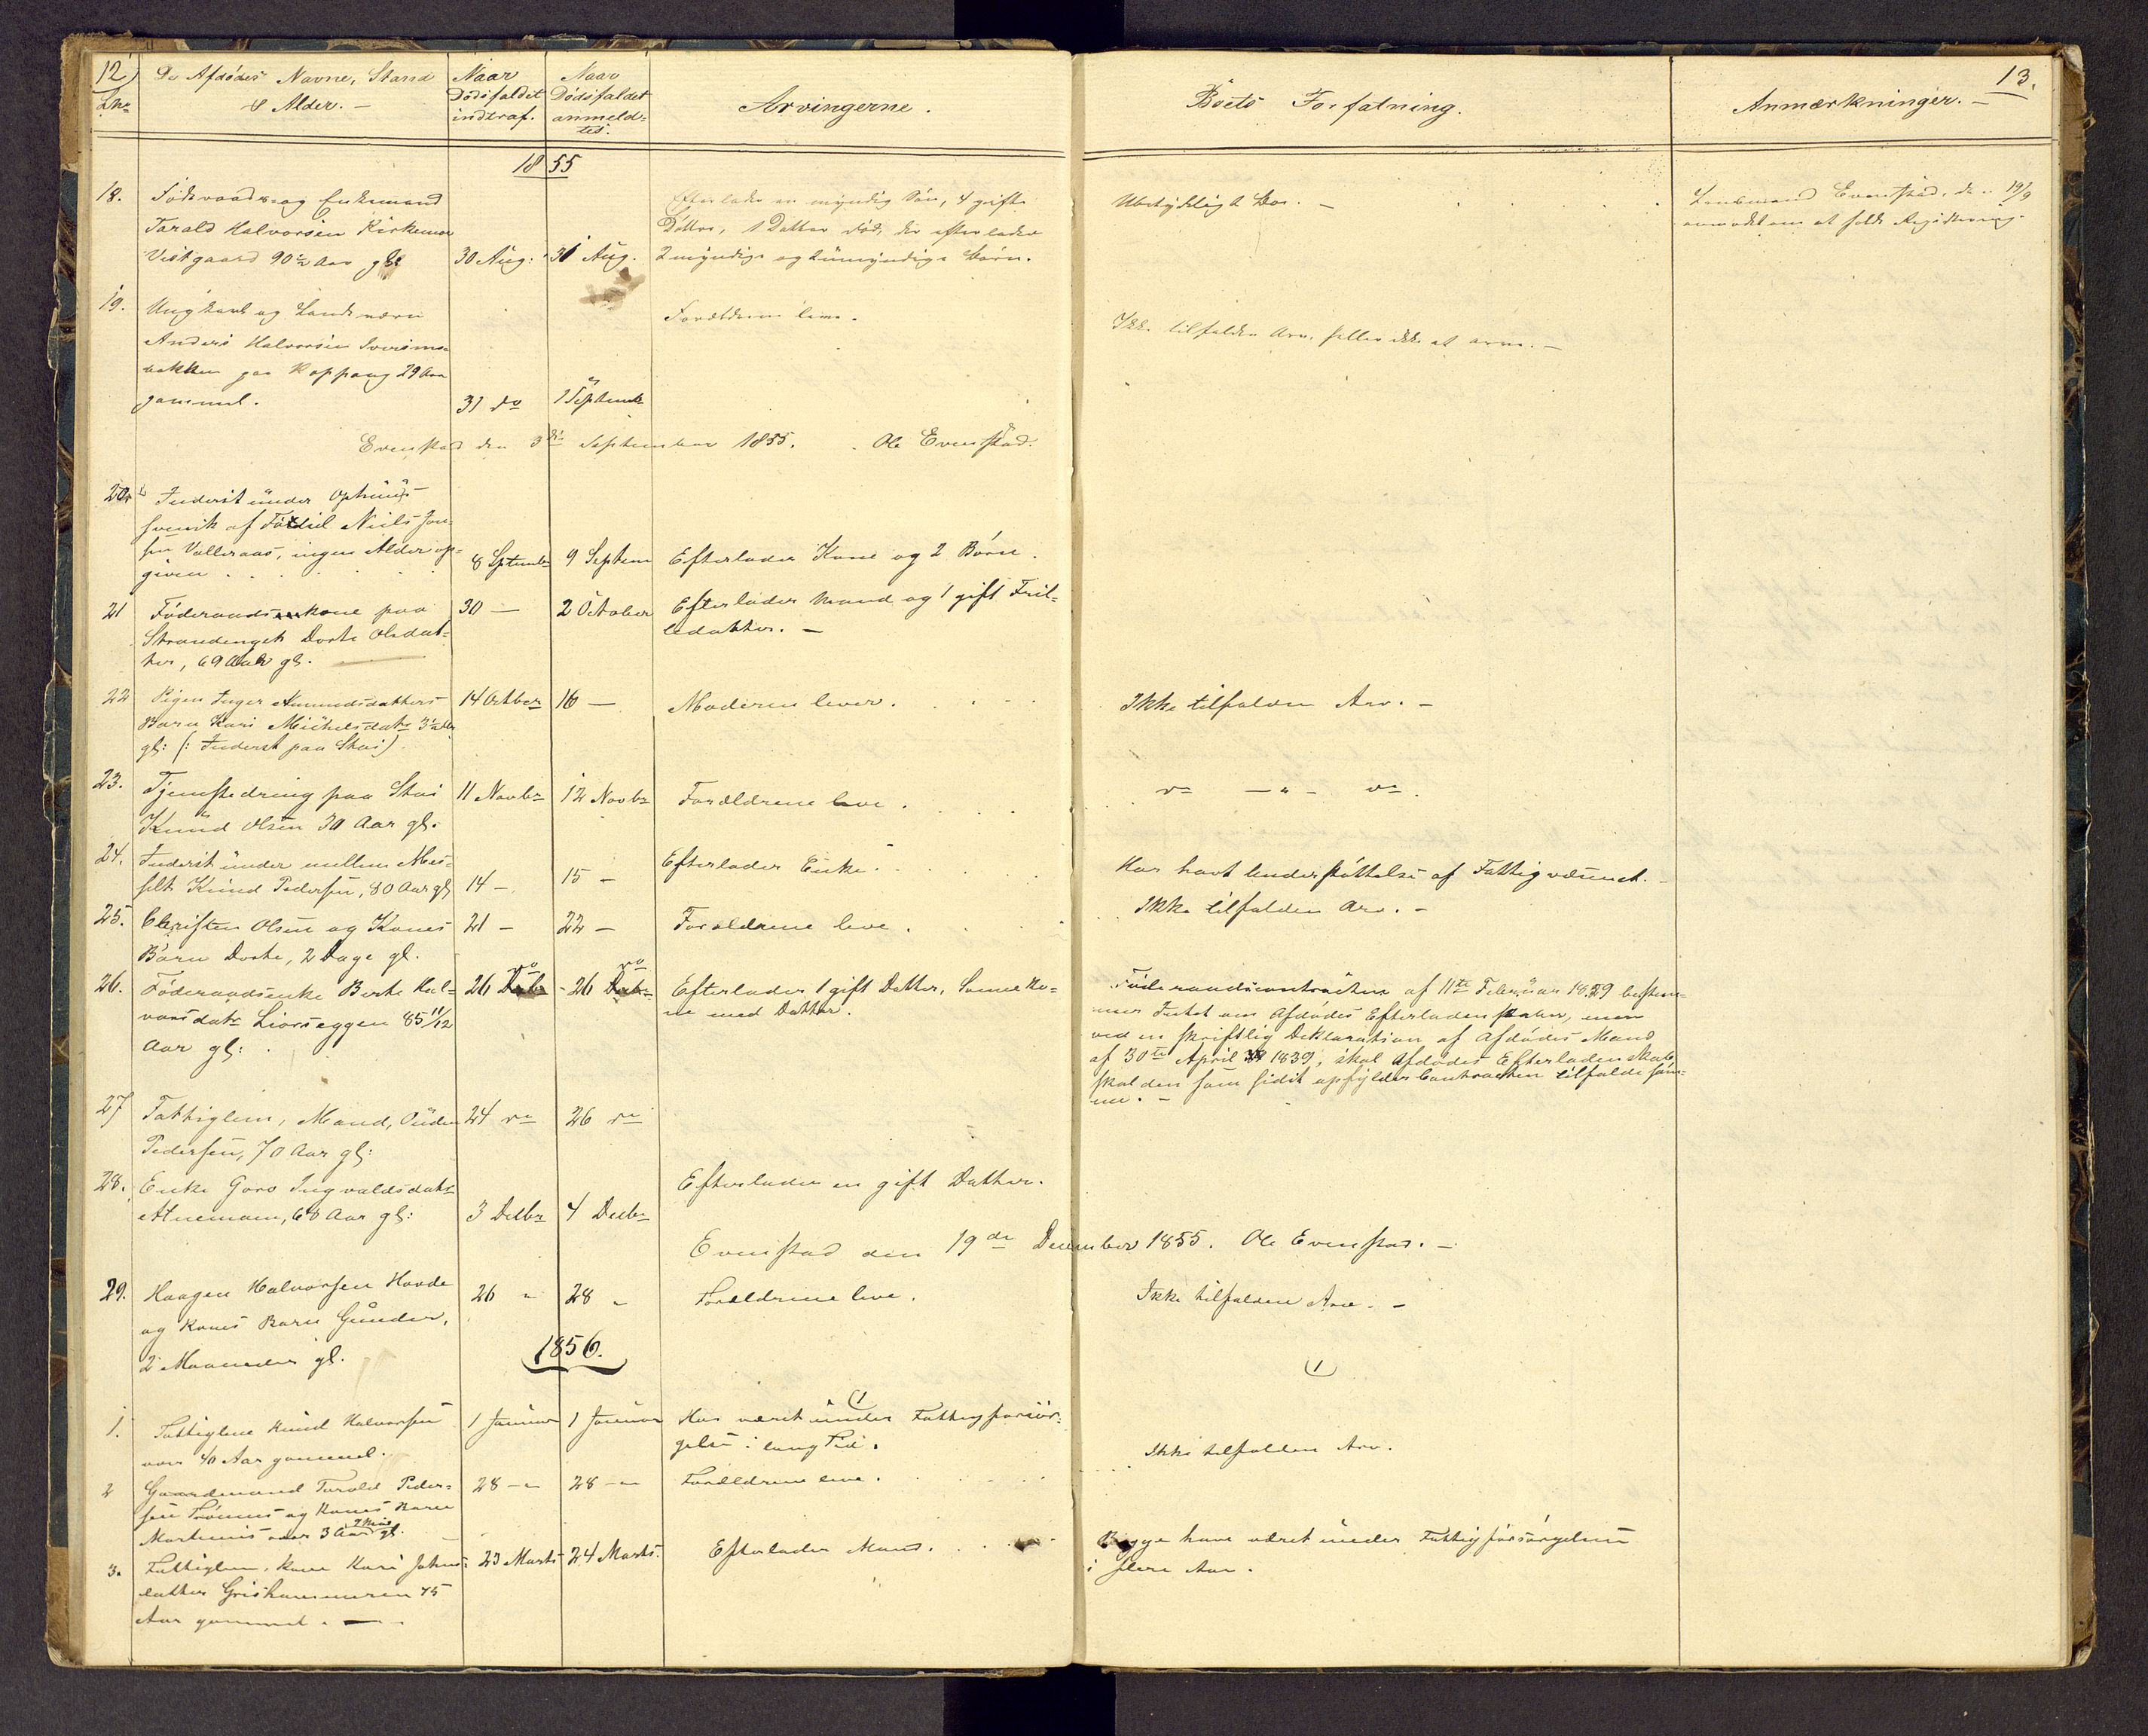 12)
Lno
De Afdødes Navne, Stand
& Alder. —
Naar
Dødsfaldet
indtraf.
Naar
Dødsfaldet
anmeld-
tes.
Arvingerne.
Boets Forfatning.
Anmærkninger. —
13.
1855
18.
Föderaads og Enkemand
Tarald Halvorsen Kirkemo
Vestgaard 90½ Aar gl:
30 Aug:
31 Aug.
Efterlader en myndig Søn, 4 gifte
Døttre, 1 Datter død, der efterlader
2 myndige og umyndige Børn.
Ubetydeligt Boe. —
Lensmand Evenstad, d. 19/9
anmodet om at holde Registrering.
19.
Ungkarl og Landeværn
Anders Halvorsen
bakken paa Koppang 29 Aar
gammel.
31 do
1 Septembr
Forældrene leve.
Ikke tilfalden Arv, heller ikke at arve. —
Evenstad den 3die September 1855. Ole Evenstad.
20.
Inderst under Ophuus
Niels Jon-
sen Valleraas, ingen Alder op-
given . . .
8 Septembr
9 Septem
Efterlader Kone og 2 Børn.
21
Föderaadskone paa
Strandenget Dorte Olsdat-
ter, 69 Aar gl. —
30 —
2 October
Efterlader Mand og 1 gift Fril-
ledatter. —
22
Pigen Inger Amundsdatters
Barn Kari Michelsdatr 3½ Aar
gl: (: Inderst paa Stai)
14 Octber
16 —
Moderen lever.
Ikke tilfalden Arv. —
23.
Tjenestedreng paa Stai
Knud Olsen 30 Aar gl.
11 Novbr
12 Novbr
Forældrene leve.
do — " — do
24.
Inderst under mellem Mes-
selt Knud Pedersen, 80 Aar gl
14 —
15 —
Efterlader Enke.
Har havt Understøttelse af Fattigvæsenet. —
25.
Christen Olsen og Kones
Barn Dorte, 2 Dage gl.
21 —
22 —
Forældrene leve.
Ikke tilfalden Arv. —
26.
Föderaadsenke Berte Hal-
vorsdatr Liorseggen 85 11/12
Aar gl:
26 do
26 do
Efterlader 1 gift Datter,
med Datter.
Föderaadscontracten af 11te Februar 1829 bestem-
mer Intet om Afdødes Efterladenskaber, men
ved en skriftlig Deklaration af Afdødes Mand
af 30te April 1839, skal Afdødes Efterladenskab
skal den som sidst opfylder Contracten tilfalde sam-
me. —
27
Fattiglem, Mand, Ouden
Pedersen, 70 Aar gl:
24 do
26 do
28.
Enke Goro Ingvaldsdatr
Atnemoen, 68 Aar gl:
3 Decbr
4 Decbr
Efterlader en gift Datter.
Evenstad den 19de December 1855. Ole Evenstad. —
29.
Haagen Halvorsen Hovde
og Kones Barn Gunder,
2 Maaneder gl.
26 "
28 "
Forældrene leve.
Ikke tilfalden Arv. —
1856.
1.
Fattiglem Knud Halvorsen
over 40 Aar gammel.
1 Januar
1 Januar
Har været under Fattigforsør-
gelse i lang Tid.
2
Gaardmand Tarald Peder-
sen Trønnes og Kones Barn
Martinus over 3 Aar 2 Mdr gl.
28 — "
28 — "
Forældrene leve.
Ikke tilfalden Arv.
3.
Fattiglem, Kone Kari Johns-
datter Grishammeren 45
Aar gammel. —
23 Marts
24 Marts.
Efterlader Mand.
Begge have været under Fattigforsørgelsen
i flere Aar.